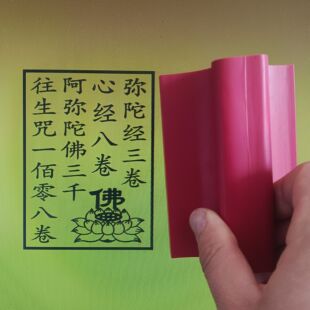 弥陀经三卷
心经八卷
阿弥陀佛三千
往生咒一佰零八卷
佛